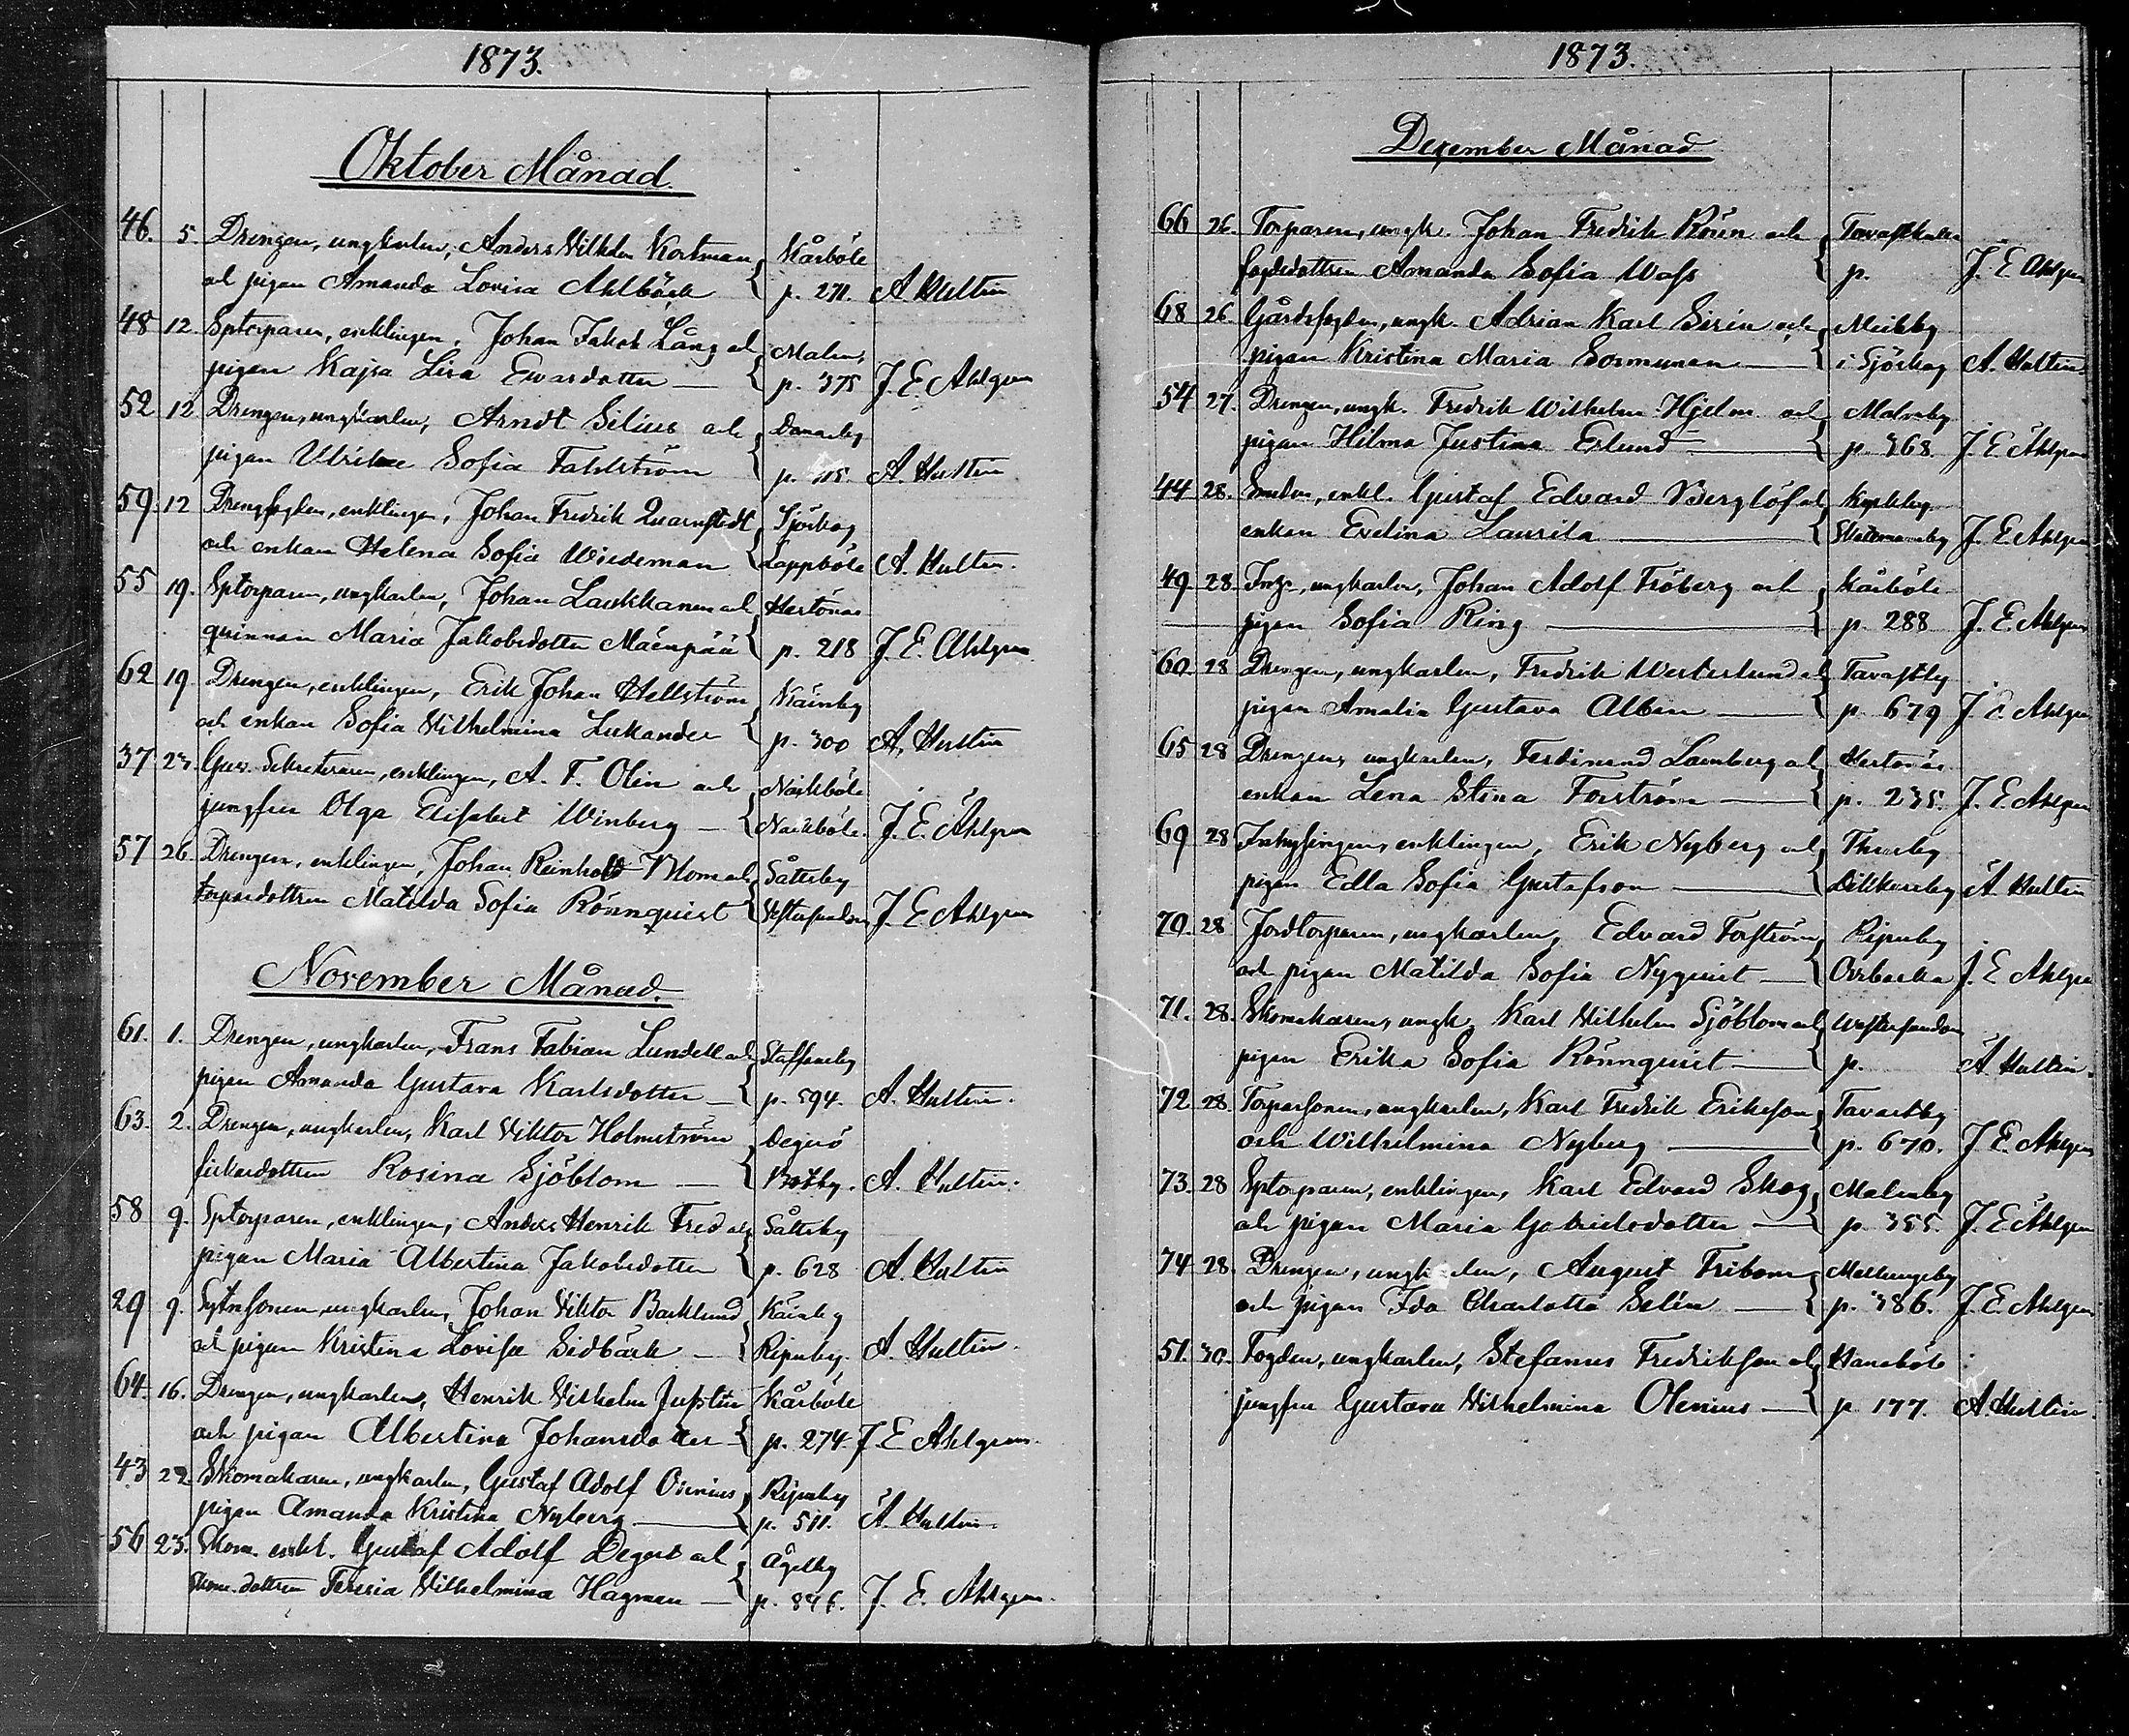 1873.
Oktober Månad.
46. 5. Drengen, ungkarlen, Anders Vilhelm Kortman Kårböle
och pigan Amanda Lovisa Ahlbäck p. 271. A Hultin
48 12. Sptorparen, enklingen, Johan Jakob Lång och Malm,
pigan Kajsa Lisa Ewardotter p. 375 J. E. Ahlgren
52 12 Drengen, ungkarlen, Arndt Silius och Domarby
pigan Ulrika Sofia Fahlström p. A. Hultin
59. 12 Drengfogden, enklingen, Johan Fredrik Quarnstedt Sjöskog
och enkan Helena Sofia Wiedeman Lappböle A. Hultin.
55 19. Sptorparen, ungkarlen, Johan Laukkanen och Hertonäs
quinnan Maria Jakobsdotter Mäenpää p. 218 J. E. Ahlgren
62 19. Drengen, enklingen, Erik Johan Hellström Käinby
och enkan Sofia Vilhelmina Lukander p. 300 A. Hultin
37 23. Guv. Sekreteraren, enklingen, A. F. Olin och Nackböle
jungfru Olga Elisabet Winberg Nackböle. J. E. Ahlgren
57 26. Drengen, enklingen, Johan Reinhold Blom och Såttsby
torpardottren Matilda Sofia Rönnquist Vestersundom J. E. Ahlgren
November Månad.
61. 1. Drengen, ungkarlen, Frans Fabian Lundell och Staffansby
pigan Amanda Gustava Karlsdotter p. 594. A. Hultin.
63. 2. Drengen, ungkarlen, Karl Viktor Holmström Degerö
fiskardottren Rosina Sjöblom Botby. A. Hultin.
58 9. Sptorparen, enklingen, Anders Henrik Fred och Såttsby
pigan Maria Albertina Jakobsdotter p. 628 A. Hultin
29 9. Sytnsonen, ungkarlen, Johan Viktor Backlund Käinby
och pigan Kristina Lovisa Sidbäck Ripuby. A. Hultin.
64. 16. Drengen, ungkarlen, Henrik Vilhelm Justin Kårböle
och pigan Albertina Johansdotter p. 274. J. E Ahlgren.
43 22. Skomakaren, ungkarlen, Gustaf Adolf Osenius, Ripuby
pigan Amanda Kristina Nyberg p. 511. A. Hultin.
56 23. Skom. enkl. Gustaf Adolf Degert och Ågelby
skom. dottren Teresia Vilhelmina Hagman p. 846. J. E. Ahlgren.
1873.
Dezember Månad
66 26. Torparen, ungk. Johan Fredrik Rosen och
fogdedottren Amanda Sofia Wass p. J. E. Ahlgren
68 26. Gårdsfogden, ungk. Adrian Karl Sirén och Meilby
pigan Kristina Maria Sormunen i Sjöskog A. Hultin.
54 27. Drengen, ungk. Fredrik Wilhelm Hjelm och Malmby
pigan Hilma Justina Erlund p. 368. J. E Ahlgren
44 28. Smeden, enkl. Gustaf Edvard Berglöf och
enkan Evelina Laurila Skattmansby J. E. Ahlgren
49. 28. Inhys., ungkarlen, Johan Adolf Fröberg och Kårböle
pigan Sofia Ring p. 288 J. E. Ahlgren
60. 28 Drengen, ungkarlen, Fredrik Westerlund och Tavastby
pigan Amalia Gustava Alben p. 679 J. E. Ahlgren
65 28 Drengen, ungkarlen, Ferdinand Lamberg och Hertonäs
enkan Lena Stina Forström p. 235. J. E. Ahlgren
69 28 Inhysingen, enklingen, Erik Nyberg och Thursby
pigan Edla Sofia Gustafson Dikkursby A. Hultin
70. 28 Jordtorparen, ungkarlen, Edvard Forström Ripuby
och pigan Matilda Sofia Nyquist Ovrbacka J. E Ahlgren
71. 28. Skomakaren, ungk. Karl Vilhelm Sjöblom och Westersundom
pigan Erika Sofia Rönnquist p. A. Hultin.
72 28. Torparsonen, ungkarlen, Karl Fredrik Erikson Tavastby
och Wilhelmina Nyberg p. 670. J. E. Ahlgren
73. 28 Sptorparen, enklingen, Karl Edvard Skog Malmby
och pigan Maria Gabrielsdotter p. 355. J. E. Ahlgren
74 28. Drengen, ungkarlen, August Fribom Mellungsby
och pigan Ida Charlotta Selin p. 386. J. E. Ahlgren
51. 30. Fogden, ungkarlen, Stefanus Fredrikson och Hanaböle
jungfru Gustava Vilhelmina Olenius p 177. A. Hultin.